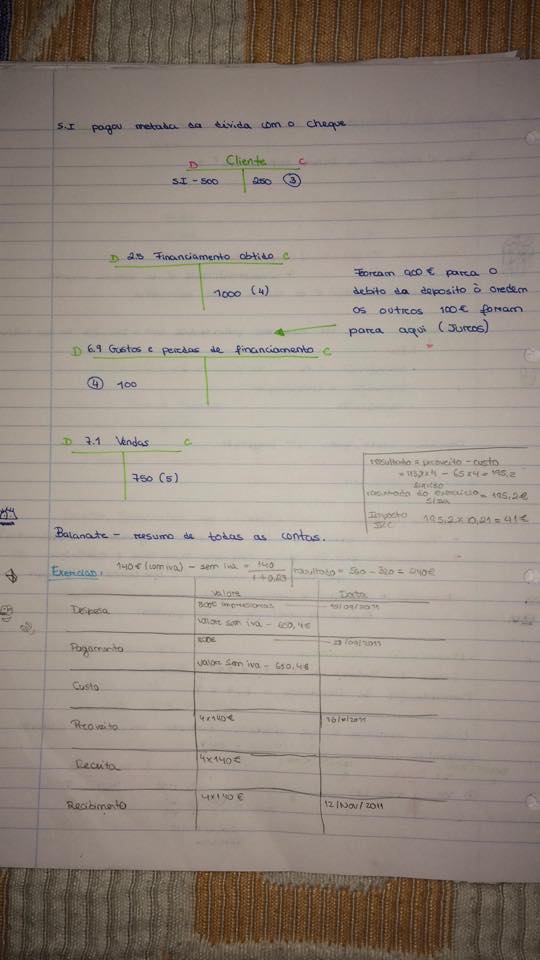 S.I pagou metade da divida com o cheque
D Cliente C
S.I - 500 250 (3)
D 2.5 Financiamento obtido C
1000 (4)
Foram 900 € para o
debito da deposito à ordem
os outros 100€ foram
para aqui (Juros)
D 6.9 Gastos e perdas de financiamento C
(4) 100
D 7.1 Vendas C
750 (5)
resultado = proveito - custo
= 113,8 x 4 - 65 x 4 = 195,2
resultado do exercicio = 195,2€
Imposto 195,2 x 0,21 = 41€
IRC
Balanate - resumo de todas as contas.
Exercicio: 140€ (com iva) - sem iva = 140 / 1+0,23 resultado = 560 - 320 = 240€
Valor Data
Despesa 800€ impressoras
Valor sem iva - 650,4€
Pagamento 800€
Valor sem iva - 650,4€
Custo
Proveito 4x140€
Receita 4x140€
Recibimento 4x140€ 12/Nov/2011